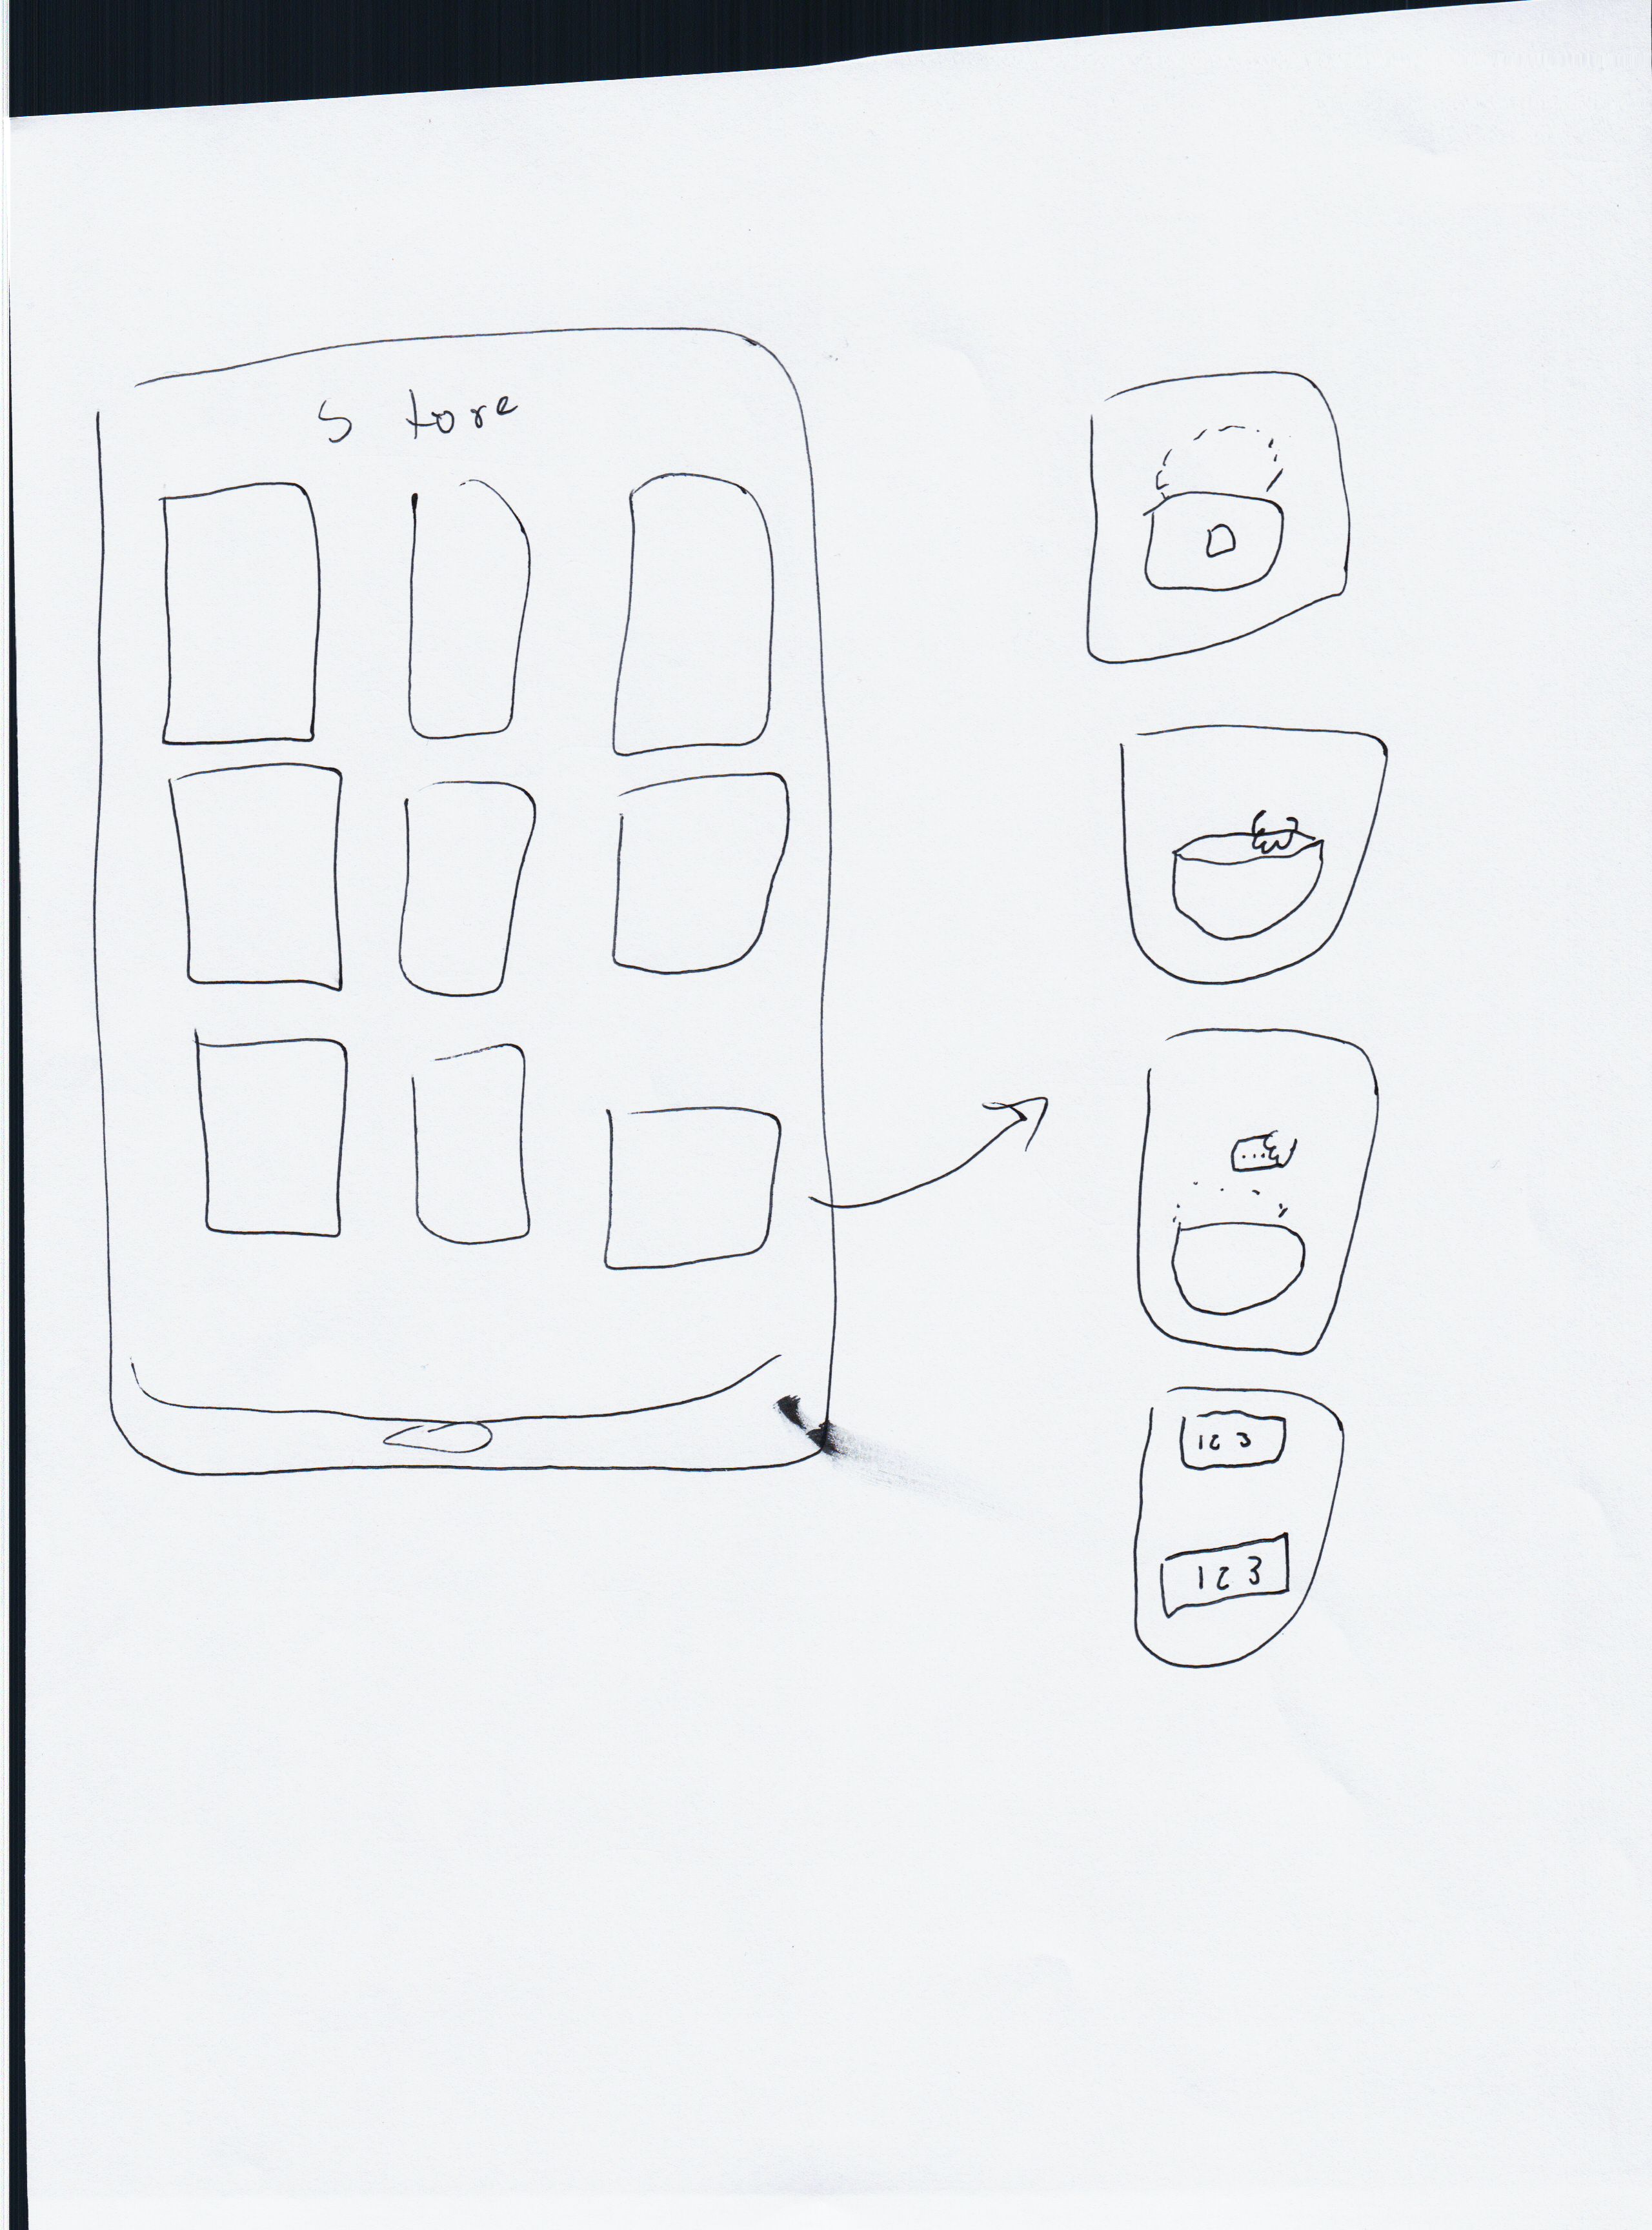 Store
123
123